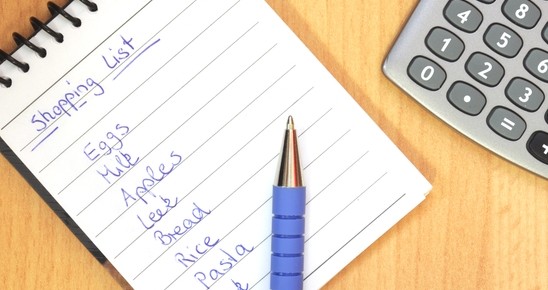 Shopping List
Eggs
Milk
Apples
Leek
Bread
Rice
Pasta
8
4 5 6
1 2 3
0 . =
+